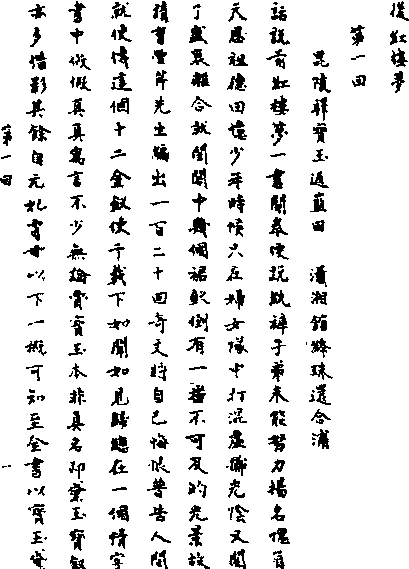 後紅樓夢
第一回
毘陵驛寶玉返藍田　瀟湘館絳珠還合浦
話說前紅樓夢一書開卷便說紈袴子弟未能努力揚名愧負
天恩祖德回憶少年時候只在婦女隊中打混虛擲光陰又閱
了盛衰離合就閨閣中幾個裙釵倒有一番不可及的光景故
請曹雪芹先生編出一百二十回奇文將自己悔恨普告人間
就便傳這個十二金釵使千載下如聞如見歸總在一個情字
書中假假真真寓言不少無論賈寶玉本非真名即黛玉寶釵
亦多借影其餘自元妃賈母以下一概可知至全書以寶玉黛
第一回　一